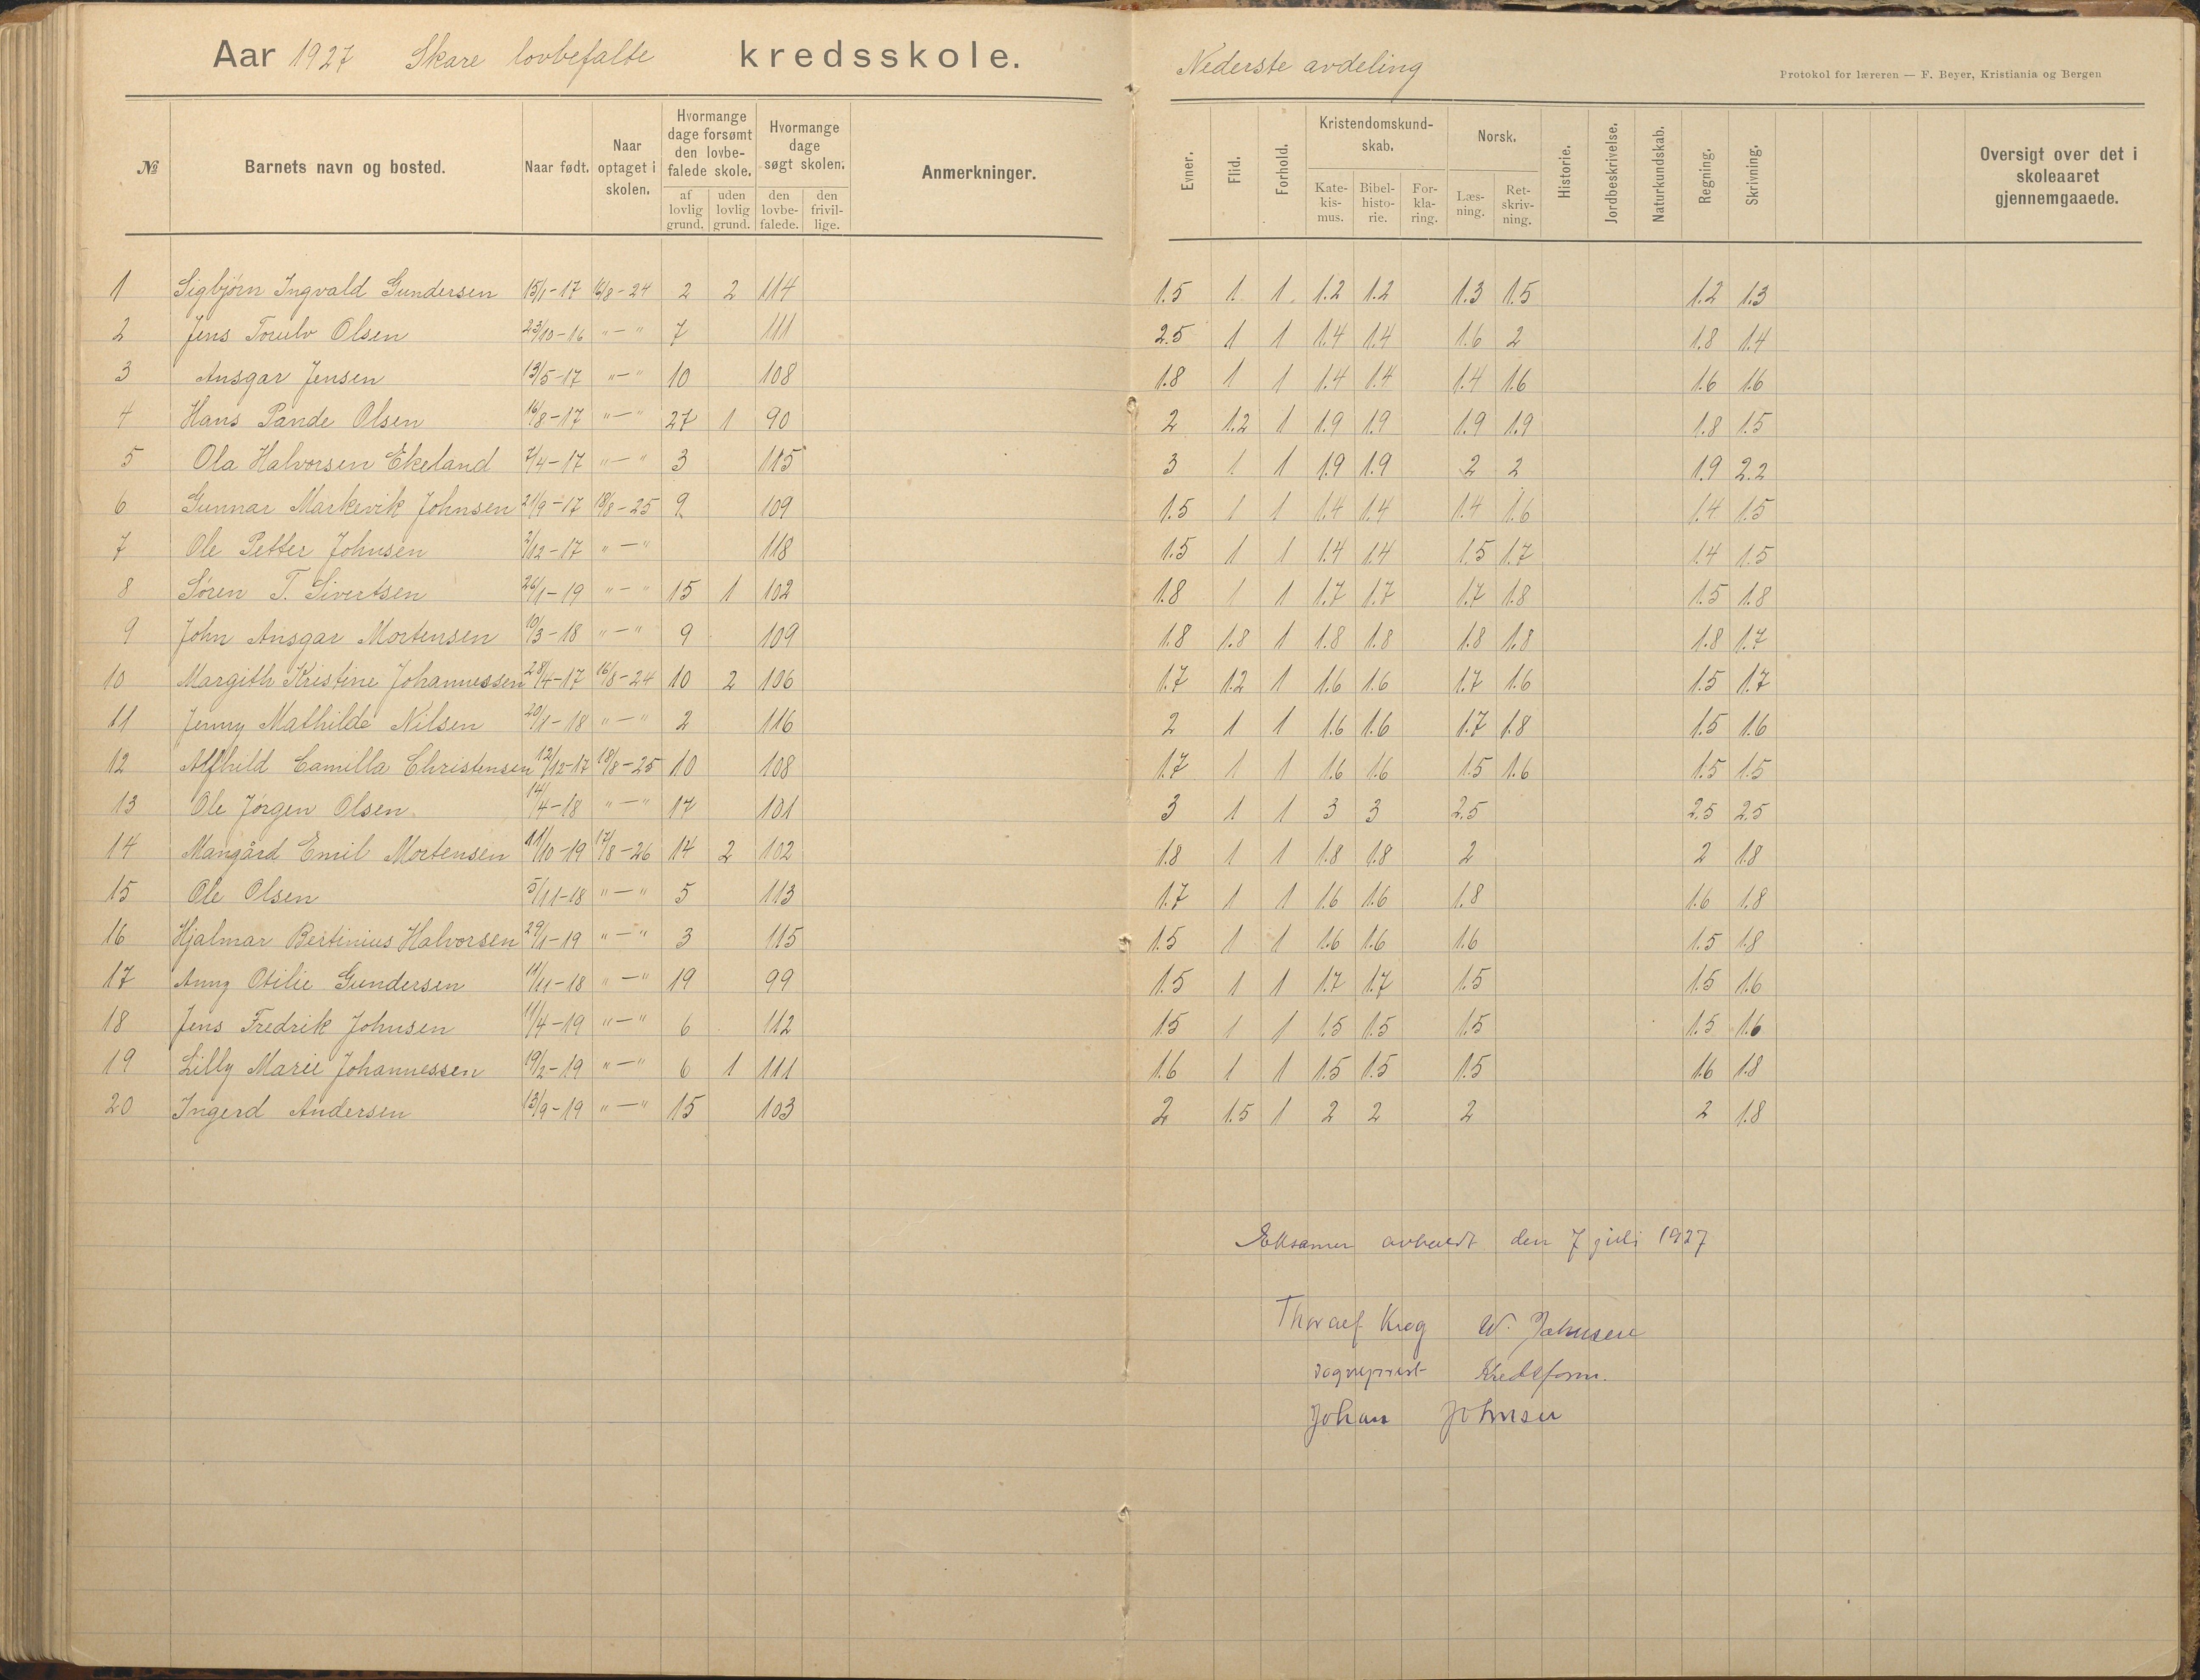 Aar 1927 Skare lovbefalte kredsskole. Nederste avdeling
Protokol for læreren — F. Beyer, Kristiania og Bergen
№ Barnets navn og bosted. Naar født. Naar optaget i skolen. Hvormange dage forsømt den lovbefalede skole. af lovlig grund. uden lovlig grund. Hvormange dage søgt skolen. den lovbefalede. den frivillige. Anmerkninger. Evner. Flid. Forhold. Kristendomskundskab. Katekismus. Bibelhistorie. Forklaring. Norsk. Læsning. Retskrivning. Historie. Jordbeskrivelse. Naturkundskab. Regning. Skrivning. Oversigt over det i skoleaaret gjennemgaaede.
1 Sigbjørn Ingvald Gundersen 15/1-17 16/8-24 2 2 114 1.5 1 1 1.2 1.2 1.3 1.5 1.2 1.3
2 Jens Torulv Olsen 23/10-16 "—" 7 111 2.5 1 1 1.4 1.4 1.6 2 1.8 1.4
3 Ansgar Jensen 13/5-17 "—" 10 108 1.8 1 1 1.4 1.4 1.4 1.6 1.6 1.6
4 Hans Pande Olsen 16/8-17 "—" 27 1 90 2 1.2 1 1.9 1.9 1.9 1.9 1.8 1.5
5 Ola Halvorsen Ekeland 7/4-17 "—" 3 115 3 1 1 1.9 1.9 2 2 1.9 2.2
6 Gunnar Markevik Johnsen 21/9-17 18/8-25 9 109 1.5 1 1 1.4 1.4 1.4 1.6 1.4 1.5
7 Ole Petter Johnsen 2/12-17 "—" 118 1.5 1 1 1.4 1.4 1.5 1.7 1.4 1.5
8 Søren T. Sivertsen 26/1-19 "—" 15 1 102 1.8 1 1 1.7 1.7 1.7 1.8 1.5 1.8
9 John Ansgar Mortensen 10/3-18 "—" 9 109 1.8 1.8 1 1.8 1.8 1.8 1.8 1.8 1.7
10 Margith Kristine Johannessen 28/4-17 16/8-24 10 2 106 1.7 1.2 1 1.6 1.6 1.7 1.6 1.5 1.7
11 Jenny Mathilde Nilsen 20/1-18 "—" 2 116 2 1 1 1.6 1.6 1.7 1.8 1.5 1.6
12 Alfhild Camilla Christensen 12/12-17 18/8-25 10 108 1.7 1 1 1.6 1.6 1.5 1.6 1.5 1.5
13 Ole Jørgen Olsen 14/4-18 "—" 17 101 3 1 1 3 3 2.5 2.5 2.5
14 Mangård Emil Mortensen 11/10-19 17/8-26 14 2 102 1.8 1 1 1.8 1.8 2 2 1.8
15 Ole Olsen 5/11-18 "—" 5 113 1.7 1 1 1.6 1.6 1.8 1.6 1.8
16 Hjalmar Bertinius Halvorsen 29/1-19 "—" 3 115 1.5 1 1 1.6 1.6 1.6 1.5 1.8
17 Anny Otilie Gundersen 11/11-18 "—" 19 99 1.5 1 1 1.7 1.7 1.5 1.5 1.6
18 Jens Fredrik Johnsen 11/4-19 "—" 6 112 1.5 1 1 1.5 1.5 1.5 1.5 1.6
19 Lilly Marie Johannessen 19/2-19 "—" 6 1 111 1.6 1 1 1.5 1.5 1.5 1.6 1.8
20 Ingerd Andersen 13/9-19 "—" 15 103 2 1.5 1 2 2 2 2 1.8
Eksamen avholdt den 7 juli 1927
Thoralf Krog W. Johnsen
sogneprest Kredsform.
Johan Johnsen